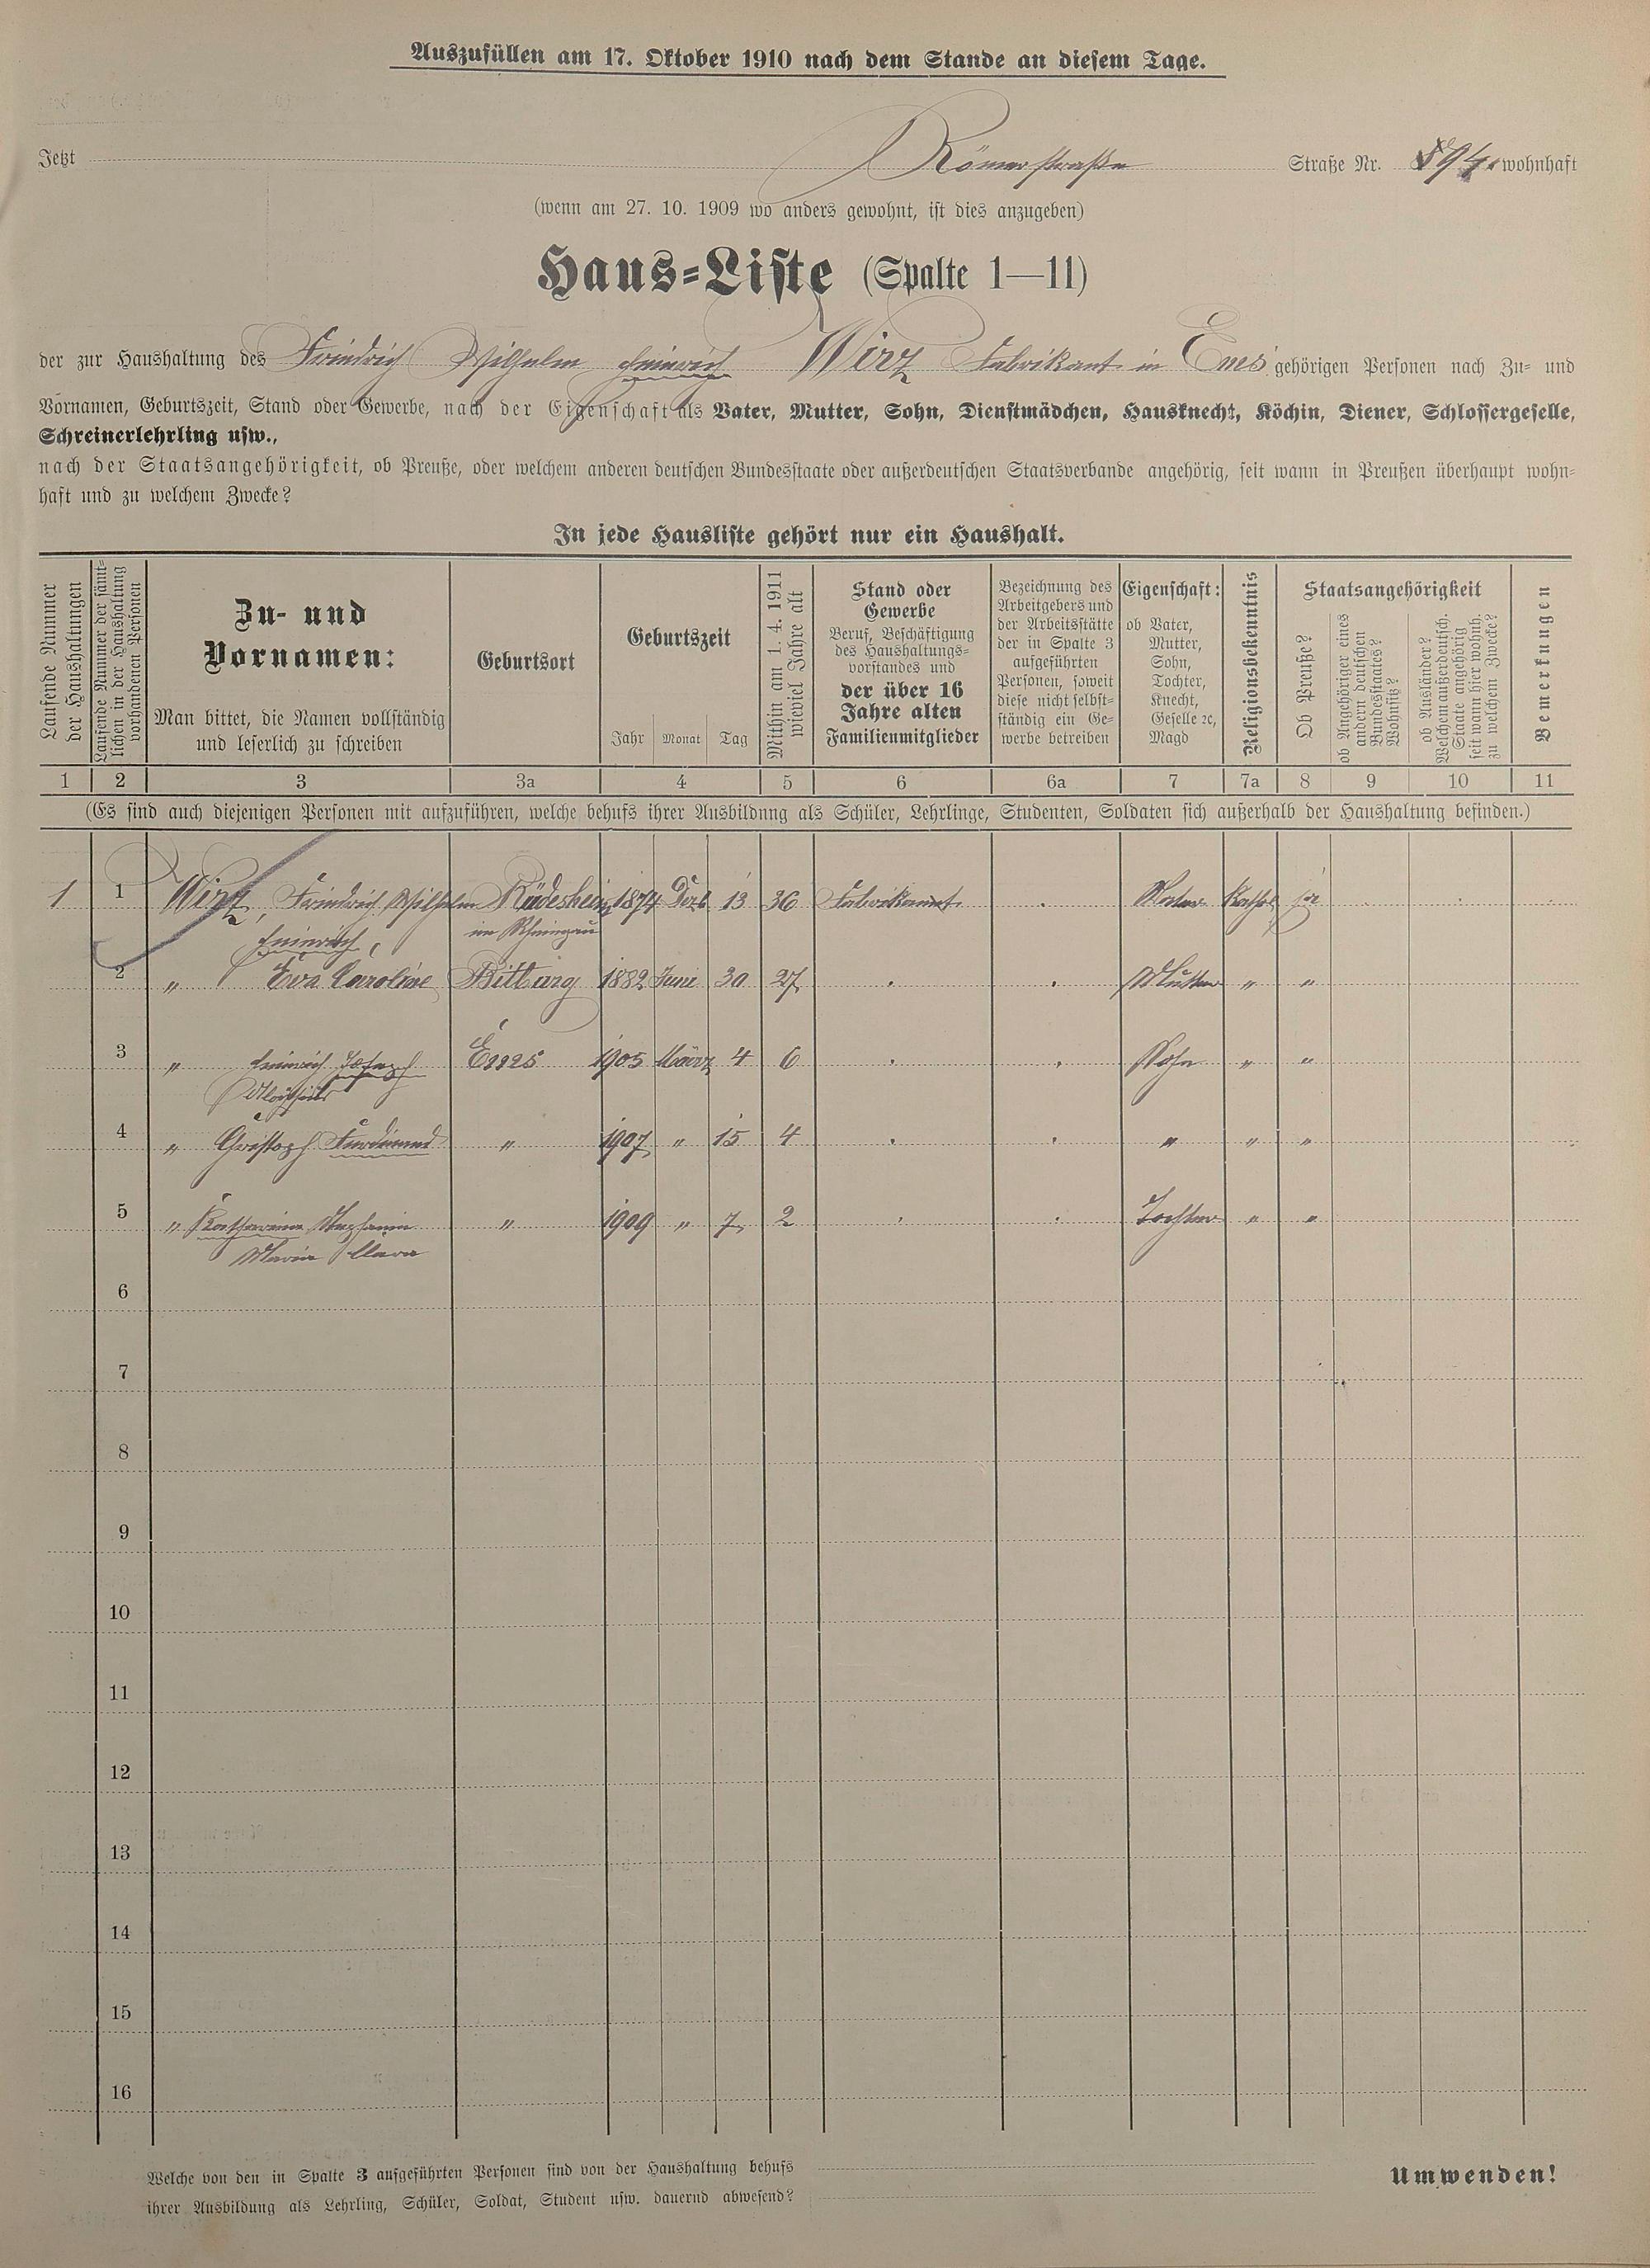 Auszufüllen am 17. Oktober 1910 nach dem Stande an diesem Tage.
Jetzt Römerstraße Straße Nr. wohnhaft
(wenn am 27. 10. 1909 wo anders gewohnt, ist dies anzugeben)
Haus-Liste (Spalte 1—11)
der zur Haushaltung des Friedrich Wilhelm Heinrich Wirz Fabrikant in Ems gehörigen Personen nach Zu- und
Vornamen, Geburtszeit, Stand oder Gewerbe, nach der Eigenschaft als Vater, Mutter, Sohn, Dienstmädchen, Hausknecht, Köchin, Diener, Schlossergeselle,
Schreinerlehrling usw.,
nach der Staatsangehörigkeit, ob Preuße, oder welchem anderen deutschen Bundesstaate oder außerdeutschen Staatsverbande angehörig, seit wann in Preußen überhaupt wohn-
haft und zu welchem Zwecke?
In jede Hausliste gehört nur ein Haushalt.
Laufende Nummer
der Haushaltungen
Laufende Nummer der sämt-
lichen in der Haushaltung
vorhandenen Personen
Zu- und
Vornamen:
Man bittet, die Namen vollständig
und leserlich zu schreiben
Geburtsort
Geburtszeit
Jahr Monat Tag
Mithin am 1. 4. 1911
wieviel Jahre alt
Stand oder
Gewerbe
Beruf, Beschäftigung
des Haushaltungs-
vorstandes und
der über 16
Jahre alten
Familienmitglieder
Bezeichnung des
Arbeitgebers und
der Arbeitsstätte
der in Spalte 3
aufgeführten
Personen, soweit
diese nicht selbst-
ständig ein Ge-
werbe betreiben
Eigenschaft:
ob Vater,
Mutter,
Sohn,
Tochter,
Knecht,
Geselle ꝛc,
Magd
Religionsbekenntnis
Staatsangehörigkeit
Ob Preuße?
ob Angehöriger eines
andern deutschen
Bundesstaates?
Wohnsitz?
ob Ausländer?
Welchem außerdeutsch.
Staate angehörig
seit wann hier wohnh.
zu welchem Zwecke?
Bemerkungen
1 2 3 3a 4 5 6 6a 7 7a 8 9 10 11
(Es sind auch diejenigen Personen mit aufzuführen, welche behufs ihrer Ausbildung als Schüler, Lehrlinge, Studenten, Soldaten sich außerhalb der Haushaltung befinden.)
1 1 Wirz, Friedrich Wilhelm Rüdesheim 1874 Dezb. 13 36 Fabrikant Vater Kathol. ja
Heinrich, im Rheingau
2 " Eva Caroline Bitburg 1882 Juni 30 27 Mutter " "
3 " Heinrich Joseph Ems 1905 März 4 6 Sohn " "
4 " Christoph Ferdinand " 1907 " 15 4 " " "
5 " Katharina Stephanie " 1909 " 7 2 Tochter " "
Maria Clara
6
7
8
9
10
11
12
13
14
15
16
Welche von den in Spalte 3 aufgeführten Personen sind von der Haushaltung behufs
ihrer Ausbildung als Lehrling, Schüler, Soldat, Student usw. dauernd abwesend?
Umwenden!